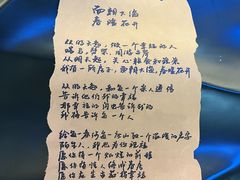 面朝大海
春暖花开
从明天起，做一个幸福的人
喂马、劈柴，周游世界
从明天起，关心粮食和蔬菜
我有一所房子，面朝大海，春暖花开
从明天起，和每一个亲人通信
告诉他们我的幸福
那幸福的闪电告诉我的
我将告诉每一个人
给每一条河每一座山取一个温暖的名字
陌生人，我也为你祝福
愿你有一个灿烂的前程
愿你有情人终成眷属
愿你在尘世获得幸福